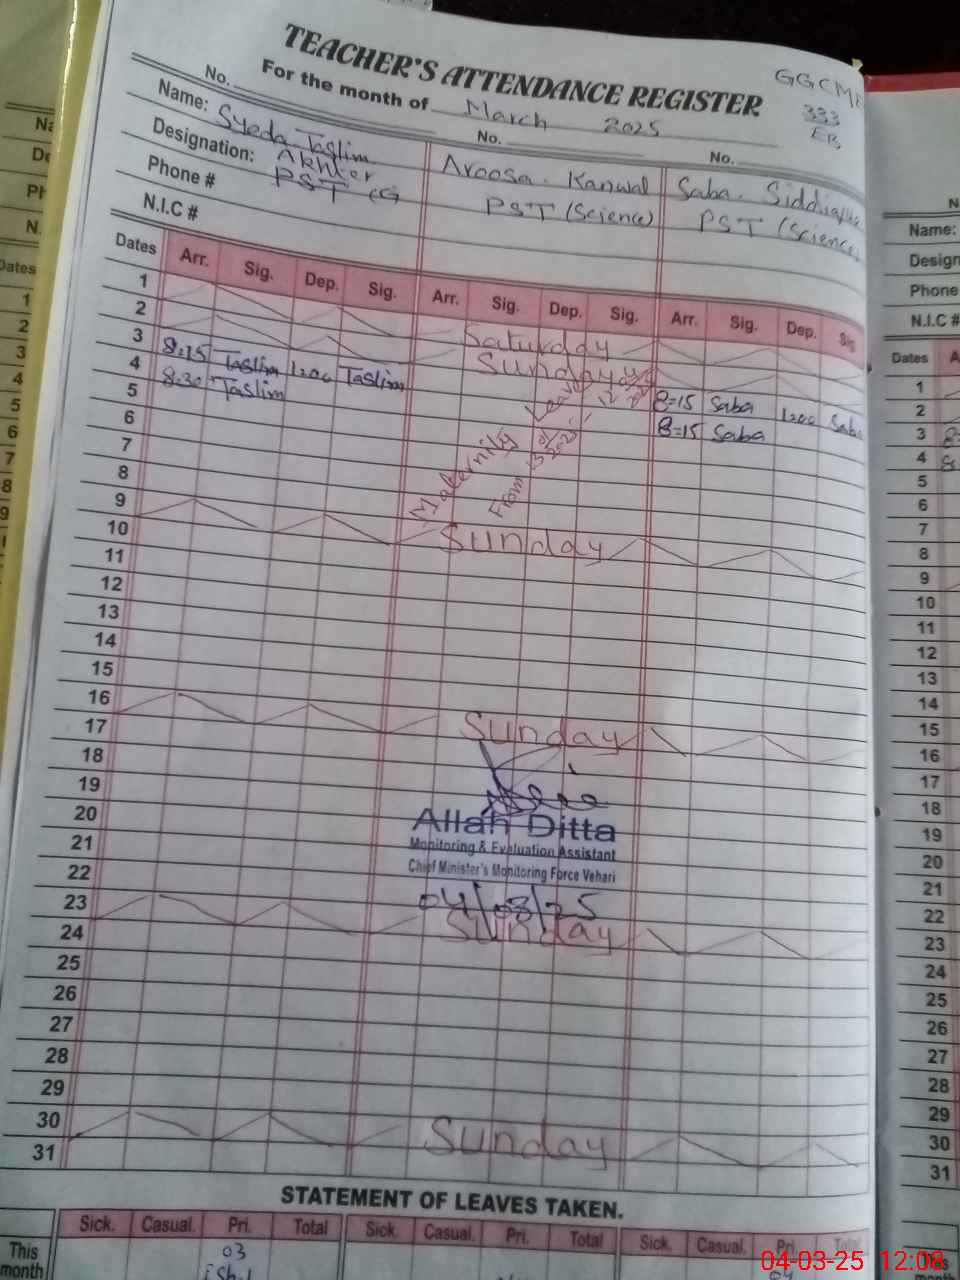 TEACHER'S ATTENDANCE REGISTER
For the month of March 2025
333
EB
No. No. No.
Name: Syeda Taslim Akhter Aroosa. Kanwal Saba.
Designation: PST PST (Science) PST (Science)
Phone #
N.I.C #
Dates Arr. Sig. Dep. Sig. Arr. Sig. Dep. Sig. Arr. Sig. Dep. Sig
1 Saturday
2 Sunday
3 8:15 Taslim 1200 Taslim 8=15 Saba 1200 Saba
4 8:30 Taslim 8=15 Saba
Maternity Leave
From
5
6
7
8
9 Sunday
10
11
12
13
14
15
16 Sunday
17
18
19
20
Allah Ditta
21
Monitoring & Evaluation Assistant
22
Chief Minister's Monitoring Force Vehari
04/03/25
23 Sunday
24
25
26
27
28
29
30 Sunday
31
STATEMENT OF LEAVES TAKEN.
Sick. Casual. Pri. Total Sick. Casual. Pri. Total Sick. Casual. Pri. Total
This month 03
Name:
Phone
N.I.C #
Dates
1
2
3
4
5
6
7
8
9
10
11
12
13
14
15
16
17
18
19
20
21
22
23
24
25
26
27
28
29
30
31
04-03-25 12:08